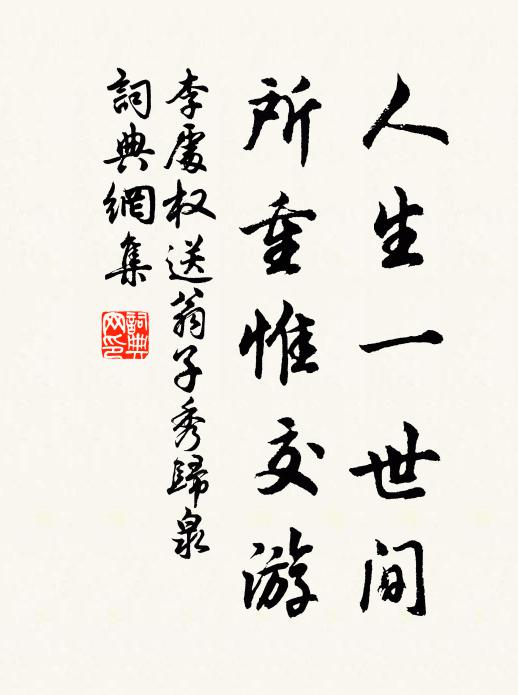 人生一世间
所重惟交游
李處权送翁子秀歸泉
詞典網集
詞典网印